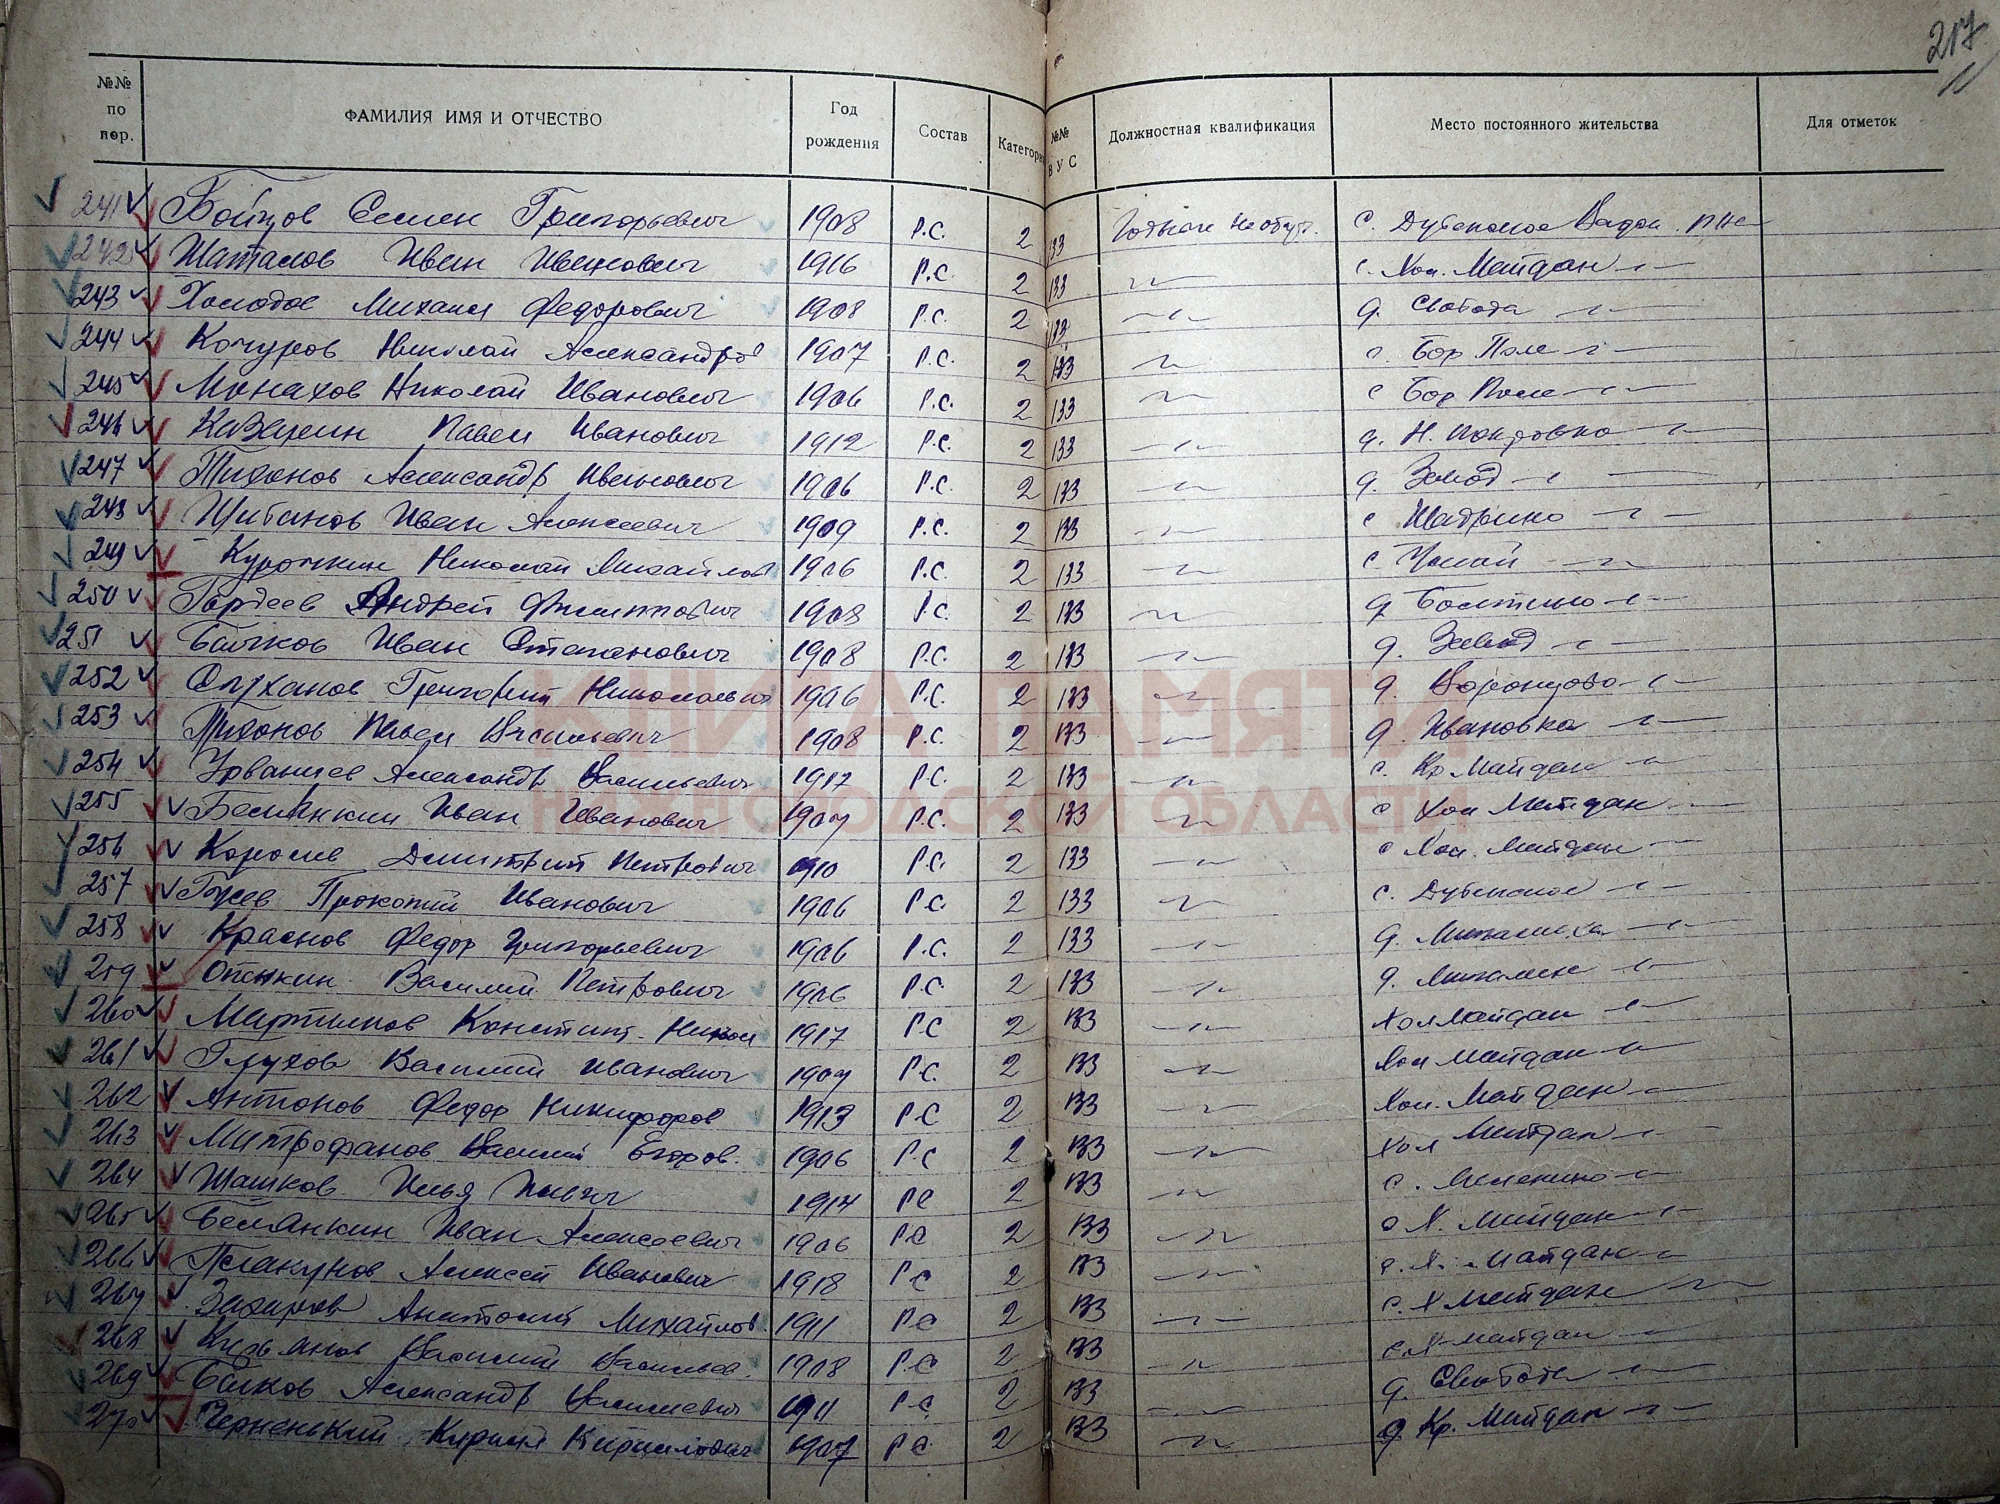 217
№№ по пор. ФАМИЛИЯ ИМЯ И ОТЧЕСТВО Год рождения Состав Категори №№ ВУС Должностная квалификация Место постоянного жительства Для отметок
241 Бойцов Семен Григорьевич 1908 Р.С. 2 133 Годные необуч. с. Дубенское Вадск.
242 Шаталов Иван Иванович 1916 Р.С. 2 133 с. Хол. Майдан
243 Холодов Михаил Федорович 1908 Р.С. 2 133 д. Свобода
244 Кочуров Николай Александров 1907 Р.С. 2 133 с. Бор Поле
245 Монахов Николай Иванович 1906 Р.С. 2 133 с Бор Поле
246 Казарин Павел Иванович 1912 Р.С. 2 133 д. Н. Покровка
247 Тихонов Александр Иванович 1906 Р.С. 2 133 д. Завод
248 Щибанов Иван Алексеевич 1909 Р.С. 2 133 с
249 Курочкин Николай Михайлов 1906 Р.С. 2 133 с
250 Гордеев Андрей Филиппович 1908 Р.С. 2 133 д
251 Бычков Иван Степанович 1908 Р.С. 2 133 д. Завод
252 Григорий Николаевич 1906 Р.С. 2 133 д. Воронцово
253 Тихонов Павел Васильевич 1908 Р.С. 2 133 д. Ивановка
254 Урванцев Александр Васильевич 1917 Р.С. 2 133 с. Кр Майдан
255 Белянкин Иван Иванович 1907 Р.С. 2 133 с Хол Майдан
256 Королев Дмитрий Петрович 1910 Р.С. 2 133 с Хол. Майдан
257 Гусев Прокопий Иванович 1906 Р.С. 2 133 с. Дубенское
258 Краснов Федор Григорьевич 1906 Р.С. 2 133 д.
259 Опенкин Василий Петрович 1906 Р.С 2 133 д.
260 Мартынов Констант. Никол 1917 Р.С 2 133 Хол Майдан
261 Глухов Василий Иванович 1907 Р.С. 2 133 Хол Майдан
262 Антонов Федор Никифоров 1913 Р.С 2 133 Хол. Майдан
263 Митрофанов Василий Егоров. 1906 Р.С 2 133 Хол Майдан
264 Шашков Илья 1914 РС 2 133 с.
265 Белянкин Иван Алексеевич 1906 РС 2 133 с Х. Майдан
266 Плакунов Алексей Иванович 1918 РС 2 133 с. Х. Майдан
267 Захаров Анатолий Михайлов. 1911 РС 2 133 с. Х Майдан
268 Василий Васильев. 1908 РС 2 133 с Х майдан
269 Александр Васильевич 1911 РС 2 133 д. Свобода
270 Черненький Кирилл Кириллович 1907 РС 2 133 д. Кр. Майдан
КНИГА ПАМЯТИ
НИЖЕГОРОДСКОЙ ОБЛАСТИ